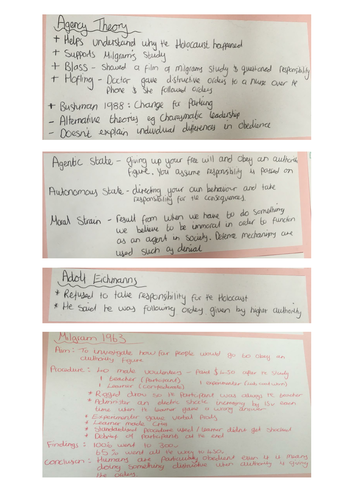 Agency Theory
+ Helps understand why the Holocaust happened
+ Supports Milgram's study
+ Blass - Showed a film of milgrams study & questioned responsibility
+ Hofling - Doctor gave distructive orders to a Nurse over the
Phone & she followed orders
+ Bushman 1988: Change for Parking
- Alternative theories eg Charasmatic leadership
- Doesn't explain individual differences in obedience
Agentic State - giving up your free will and obey an authority
figure. You assume responsibility is passed on
Autonomous State - directing your own behaviour and take
responsibility for the consequences
Moral Strain - Result from when we have to do something
we believe to be immoral in order to function
as an agent in society. Defense mechanisms are
used such as denial
Adolf Eichmanns
* Refused to take responsibility for the Holocaust
* He said he was following orders given by higher authority
Milgram 1963
Aim: To investigate how far people would go to obey an
authority figure
Procedure: 40 male volunteers - paid $4.50 after to study
1 Teacher (Participant)
1 Learner (confederate)
* Rigged draw so the participant was always the teacher
* Administer an electric shock increasing by 15v each
time when the learner gave a wrong answer
* Experimenter gave verbal prods
* Standardised procedure used / Learner didn't get shocked
* Debrief of participants at the end
Findings: 100% went to 300v
65% went all the way to 450v
Conclusion: Humans are particularly obedient even if it means
doing something distructive when authority is giving
the order